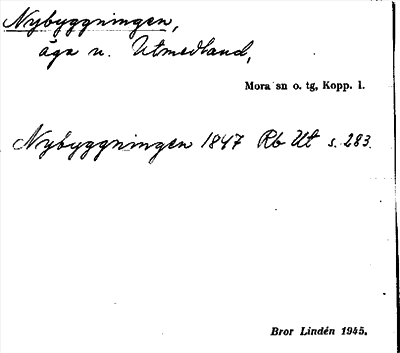 Nybyggningen,
äga u. Utmedland,
Mora sn o. tg, Kopp. l.
Nybyggningen 1847 Rb Ut s. 283.
Bror Lindén 1945.